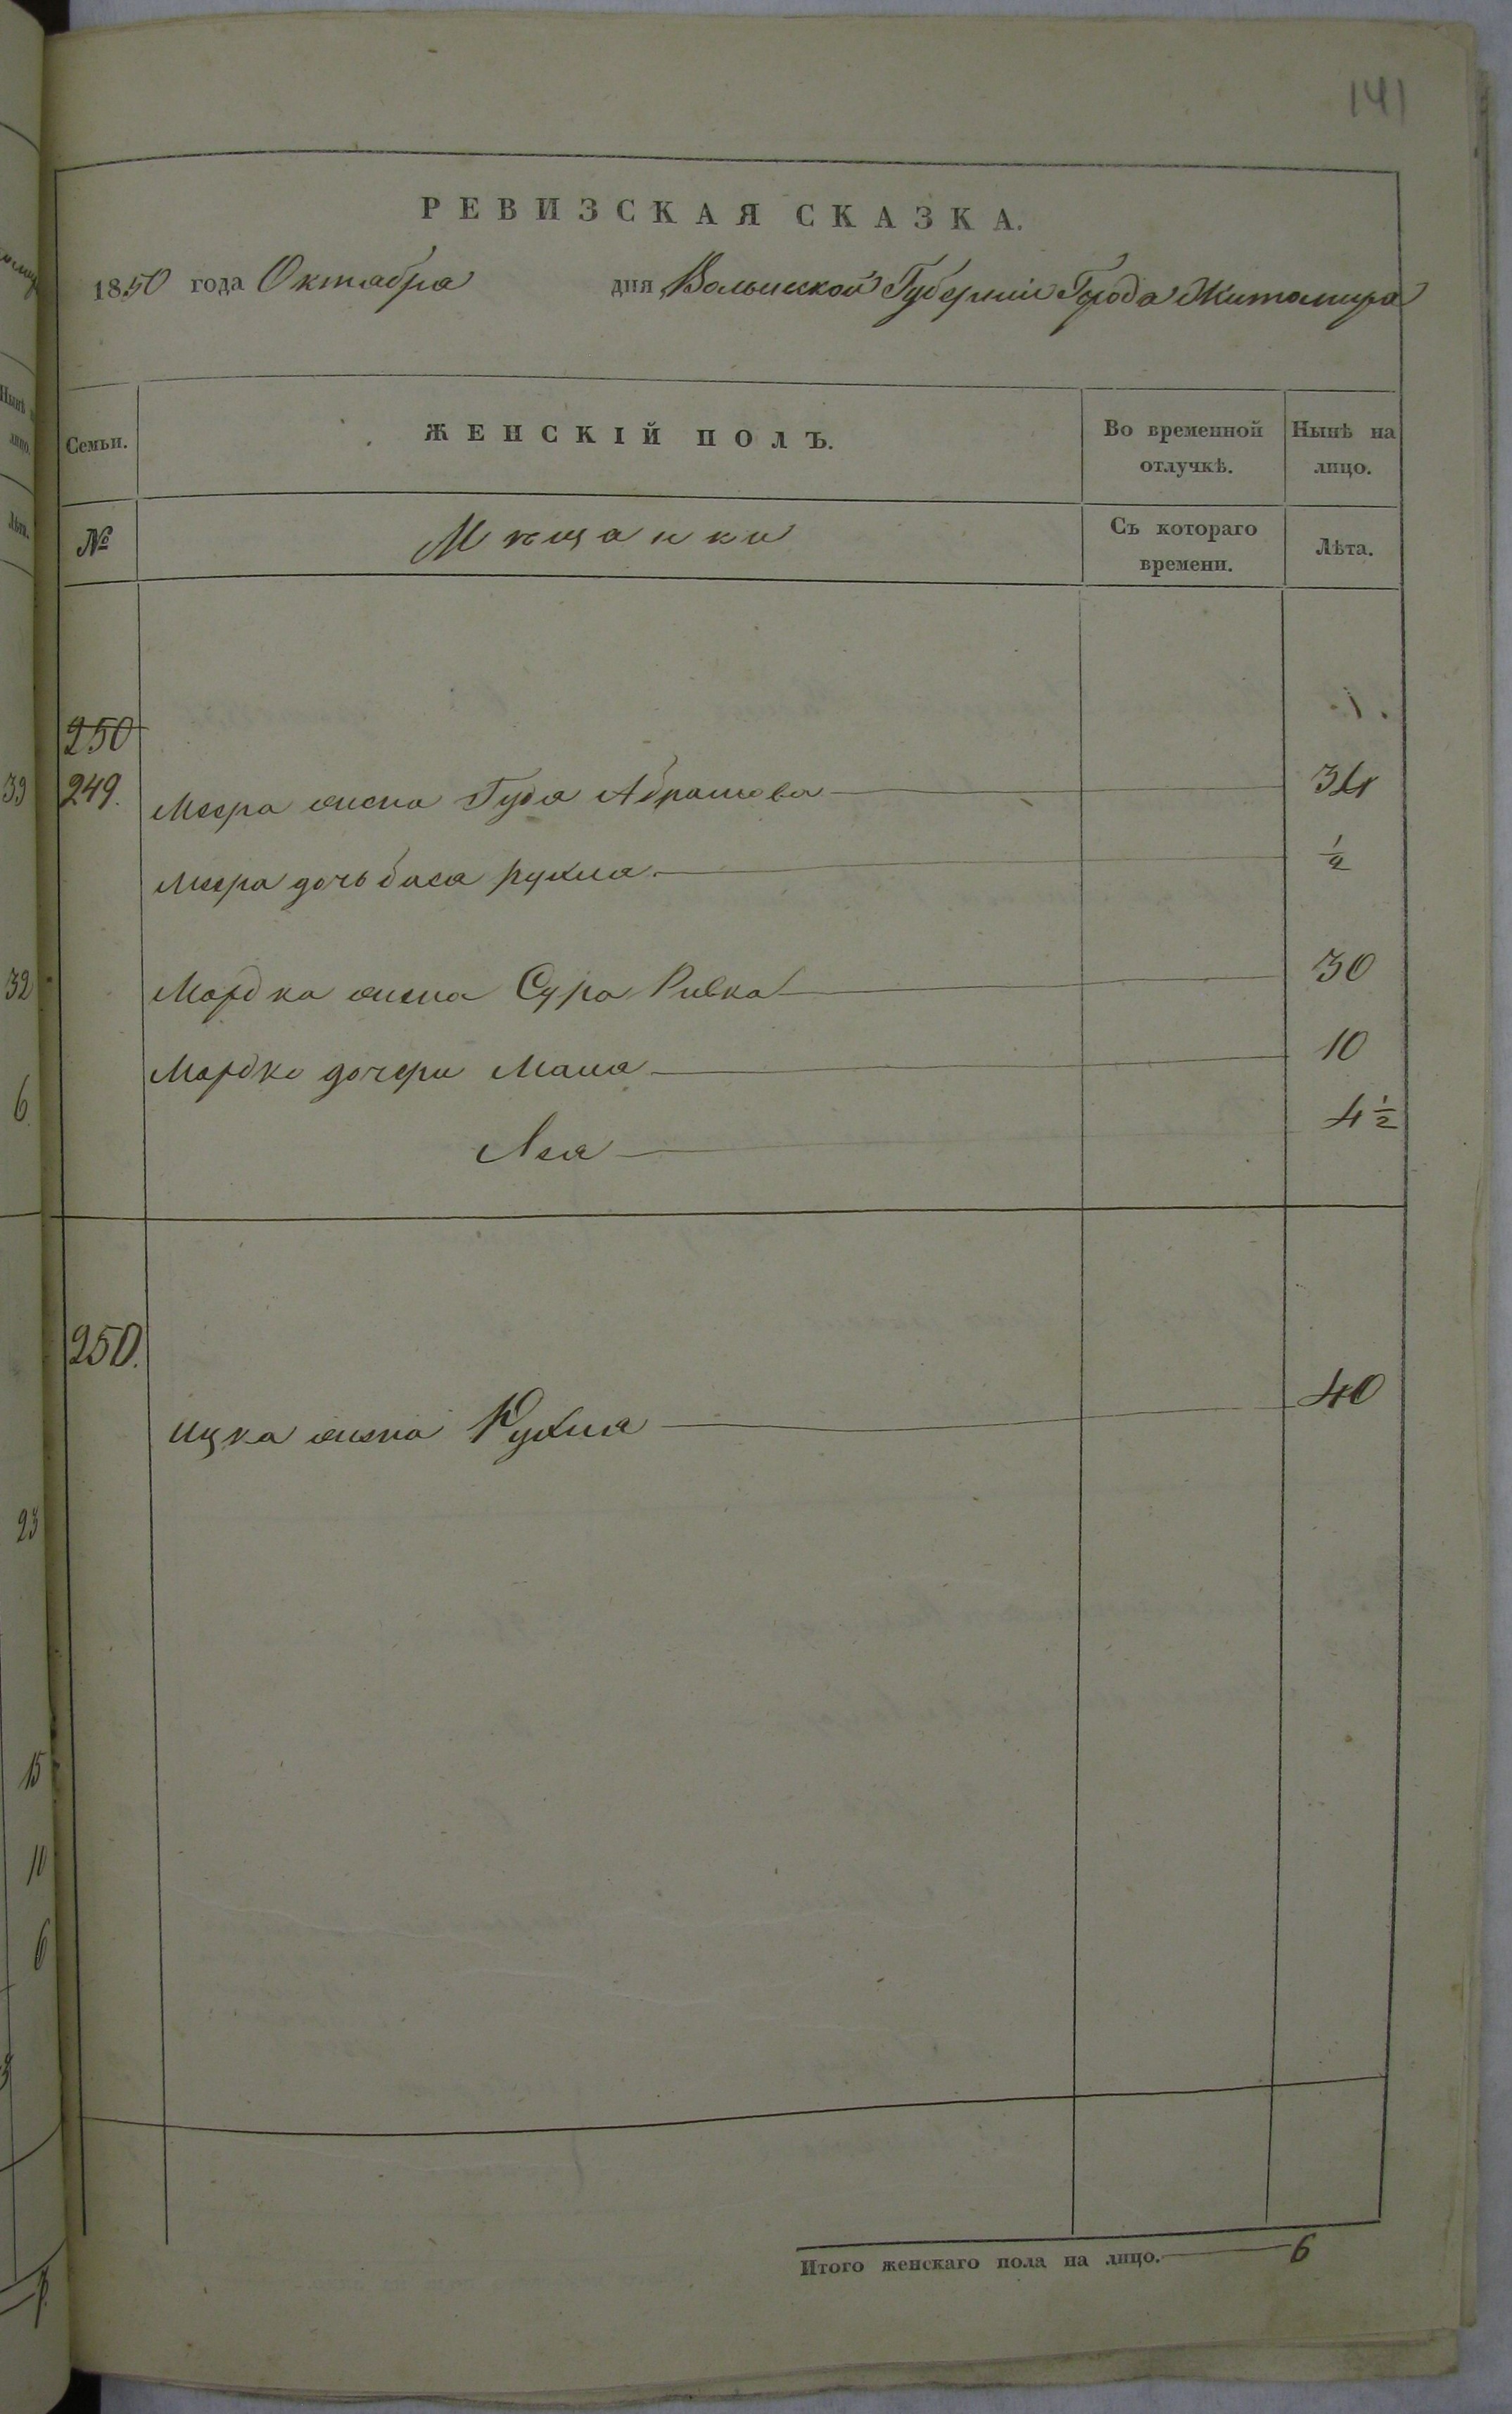 141
РЕВИЗСКАЯ СКАЗКА.
1850 года Октабра дня Волынской Губерніи Города Житомира
Семьи. ЖЕНСКІЙ ПОЛЪ. Во временной отлучкѣ. Нынѣ на лицо.
№ Мѣщанки Съ котораго времени. Лѣта.
250
249. Меера жена Гудя Абрамова 34
Меера дочь бася рухля 1/2
Мордка жена Сура Ривка 30
Мордка дочери Маша 10
Лея 4 1/2
250.
Ицка жена Рухля 40
Итого женскаго пола на лицо. 6
39
32
6
23
15
10
6